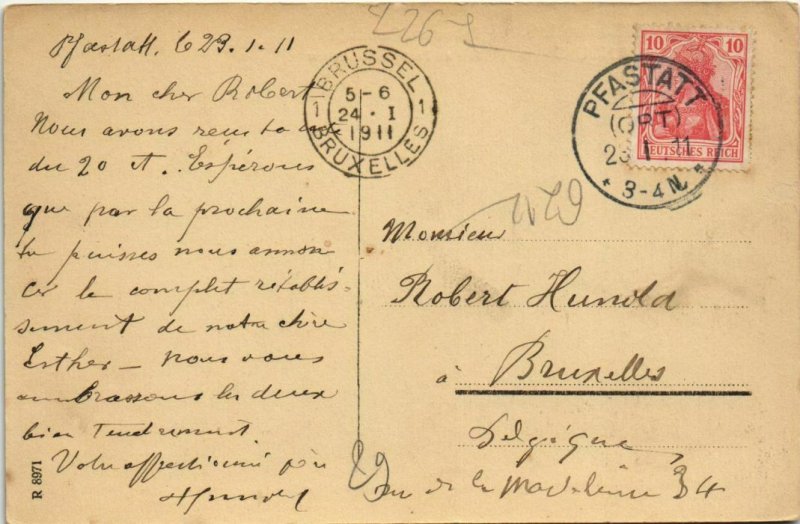 Pfastatt. le 23.1.11
Mon cher Robert
Nous avons reçu ta
du 20 ct. Espérons
que par la prochaine
tu puisses nous annon
cer le complet rétablis-
sement de notre chère
Esther — nous vous
embrassons les deux
bien tendrement.
Votre affectionné père
R 8971
BRUSSEL
1 5-6 1
24 . I
1911
BRUXELLES
10 10
DEUTSCHES REICH
PFASTATT
11
* 3-4 N. *
Monsieur
Robert Hunold
à Bruxelles
Belgique
Rue de la Madeleine 34